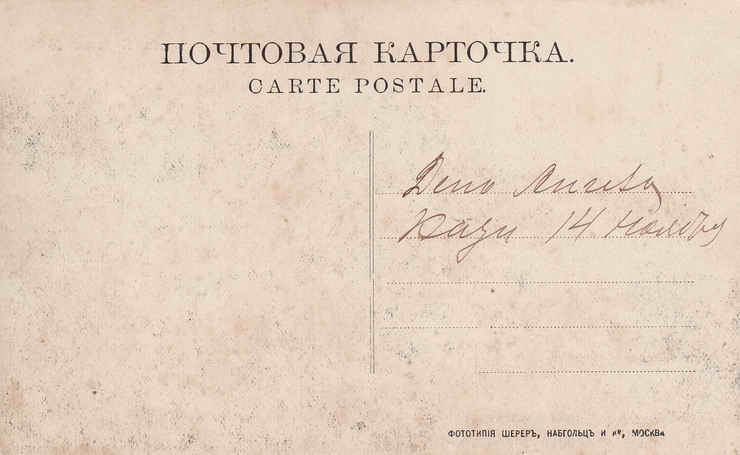 ПОЧТОВАЯ КАРТОЧКА.
CARTE POSTALE.
День Ангела
14 ноября
ФОТОТИПІЯ ШЕРЕРЪ, НАБГОЛЬЦЪ И Кº, МОСКВА